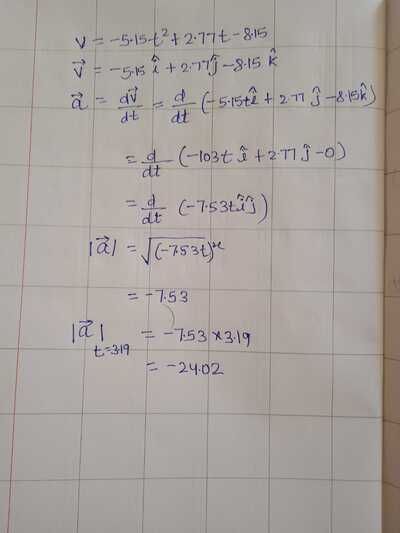 v = -5.15t² + 2.77t - 8.15
v⃗ = -5.15 î + 2.77 ĵ - 8.15 k̂
a⃗ = dv⃗/dt = d/dt (-5.15tî + 2.77 ĵ - 8.15k̂)
= d/dt (-103t î + 2.77 ĵ - 0)
= d/dt (-7.53tîĵ)
|a⃗| = √(-7.53t)²
= -7.53
|a⃗| t=3.19 = -7.53 × 3.19
= -24.02